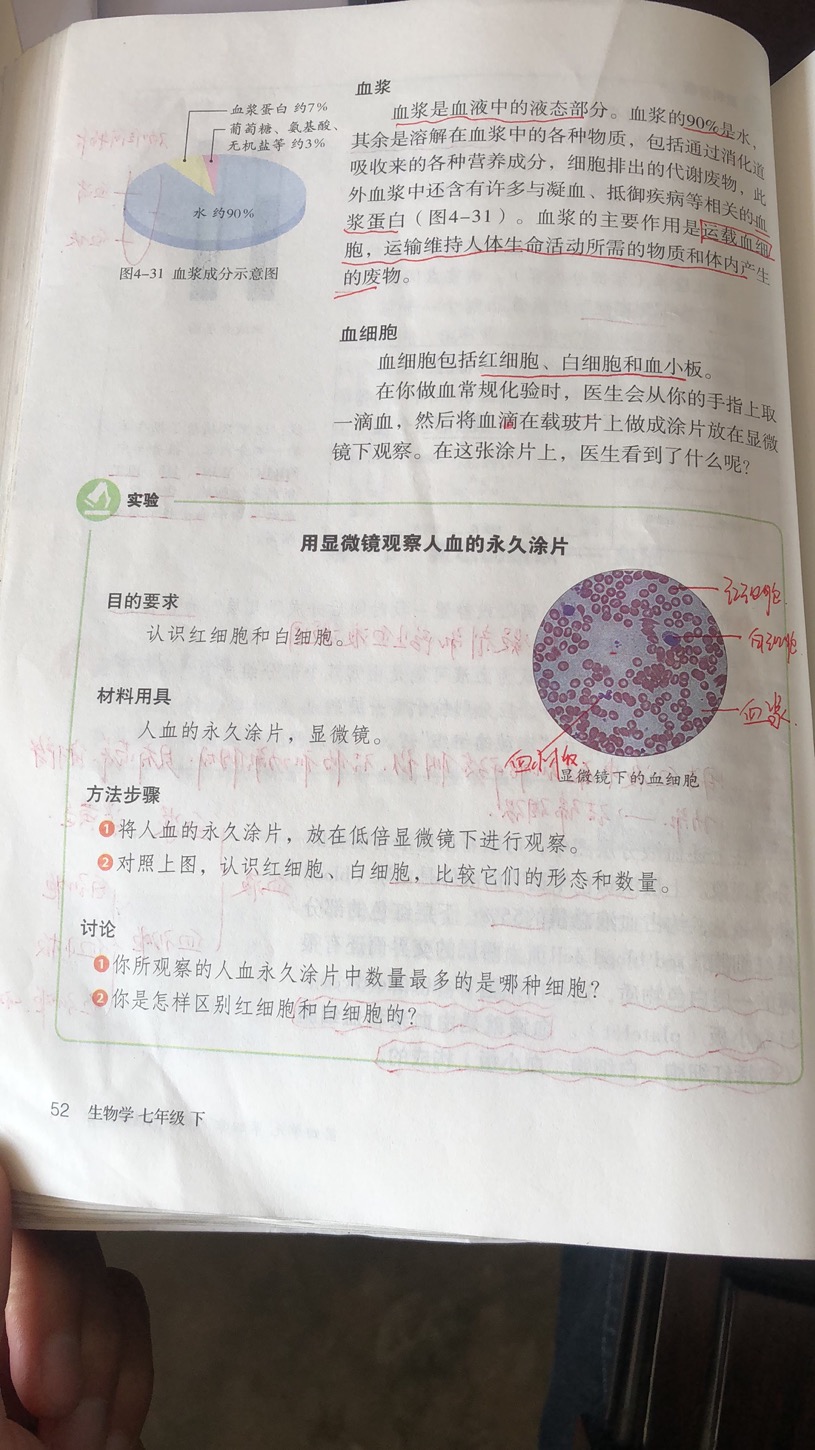 血浆蛋白 约7%
葡萄糖、氨基酸、
无机盐等 约3%
水 约90%
图4-31 血浆成分示意图
血浆
血浆是血液中的液态部分。血浆的90%是水，
其余是溶解在血浆中的各种物质，包括通过消化道
吸收来的各种营养成分，细胞排出的代谢废物，此
外血浆中还含有许多与凝血、抵御疾病等相关的血
浆蛋白（图4-31）。血浆的主要作用是运载血细
胞，运输维持人体生命活动所需的物质和体内产生
的废物。
血细胞
血细胞包括红细胞、白细胞和血小板。
在你做血常规化验时，医生会从你的手指上取
一滴血，然后将血滴在载玻片上做成涂片放在显微
镜下观察。在这张涂片上，医生看到了什么呢？
实验
用显微镜观察人血的永久涂片
目的要求
认识红细胞和白细胞。
材料用具
人血的永久涂片，显微镜。
红细胞
白细胞
血浆
血小板
显微镜下的血细胞
方法步骤
1 将人血的永久涂片，放在低倍显微镜下进行观察。
2 对照上图，认识红细胞、白细胞，比较它们的形态和数量。
讨论
1 你所观察的人血永久涂片中数量最多的是哪种细胞？
2 你是怎样区别红细胞和白细胞的？
52 生物学 七年级 下